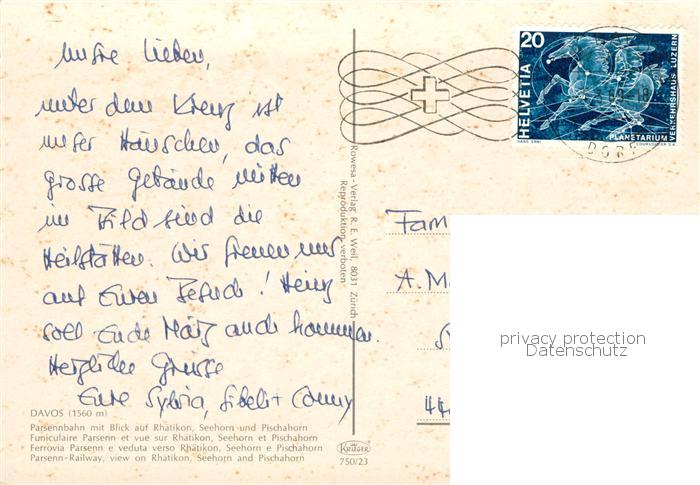 unsre Lieben,
unter dem Kreuz ist
unser Häuschen, das
grosse Gebäude mitten
im Bild sind die
Heilstätten. Wir freuen uns
auf Euren Besuch! Heinz
soll Ende März auch kommen.
Herzliche Grüsse
Eure Sylvia, Sibeli + Conny
DAVOS (1560 m)
Parsennbahn mit Blick auf Rhätikon, Seehorn und Pischahorn
Funiculaire Parsenn et vue sur Rhätikon, Seehorn et Pischahorn
Ferrovia Parsenn e veduta verso Rhätikon, Seehorn e Pischahorn
Parsenn-Railway, view on Rhätikon, Seehorn and Pischahorn
KRÜGER
750/23
Rowesa-Verlag R. E. Weil, 8031 Zürich
Reproduktion verboten
20
HELVETIA
PLANETARIUM
VERKEHRSHAUS LUZERN
HANS ERNI
COURVOISIER S.A.
DORF
Fam
A. M
44
privacy protection
Datenschutz